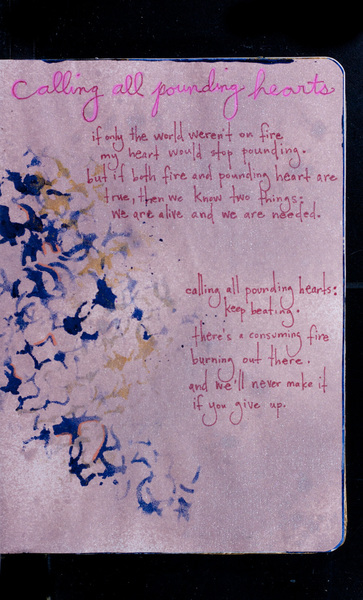 calling all pounding hearts
if only the world weren't on fire
my heart would stop pounding.
but if both fire and pounding heart are
true, then we know two things:
we are alive and we are needed.
calling all pounding hearts:
keep beating.
there's a consuming fire
burning out there.
and we'll never make it
if you give up.